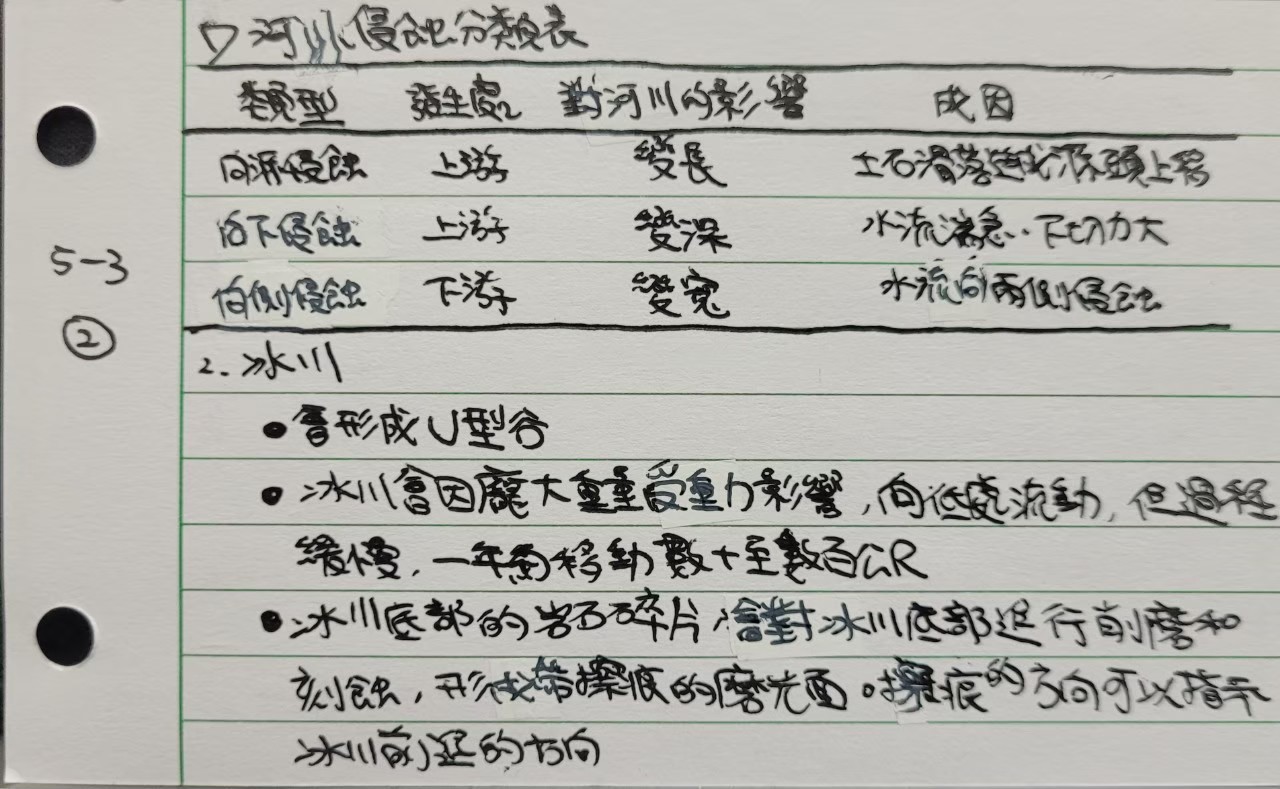 ▽ 河川侵蝕分類表
類型 發生處 對河川的影響 成因
向源侵蝕 上游 變長 土石滑落造成源頭上移
向下侵蝕 上游 變深 水流湍急..下切力大
向側侵蝕 下游 變寬 水流向兩側侵蝕
5-3
②
2. 冰川
• 會形成U型谷
• 冰川會因龐大重量受重力影響,向低處流動,但過程
緩慢,一年約移動數十至數百公尺
• 冰川底部的岩石碎片會對冰川底部進行削磨和
刻蝕,形成帶擦痕的磨光面。擦痕的方向可以指示
冰川前進的方向